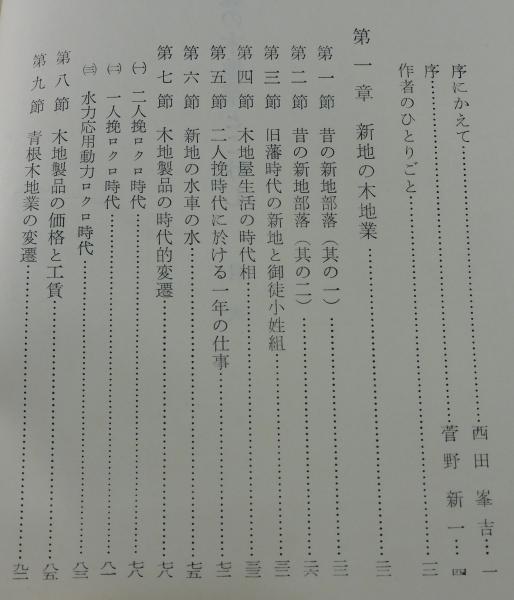 序にかえて……西田峯吉…一
序……菅野新一…四
作者のひとりごと……
第一章 新地の木地業……
第一節 昔の新地部落（其の一）……
第二節 昔の新地部落（其の二）……二六
第三節 旧藩時代の新地と御徒小姓組……
第四節 木地屋生活の時代相……
第五節 二人挽時代に於ける一年の仕事……
第六節 新地の水車の水……七五
第七節 木地製品の時代的変遷……七八
㈠ 二人挽ロクロ時代……七八
㈡ 一人挽ロクロ時代……八一
㈢ 水力応用動力ロクロ時代……八三
第八節 木地製品の価格と工賃……八五
第九節 青根木地業の変遷……